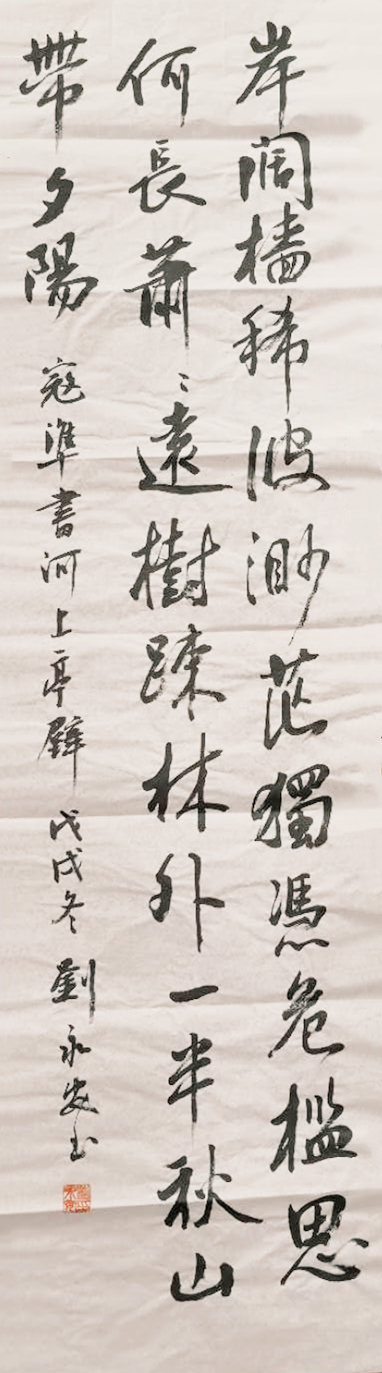 岸闊檣稀波渺茫獨憑危檻思
何長蕭〻遠樹疎林外一半秋山
帶夕陽
寇準書河上亭壁 戊戌冬 劉永安书